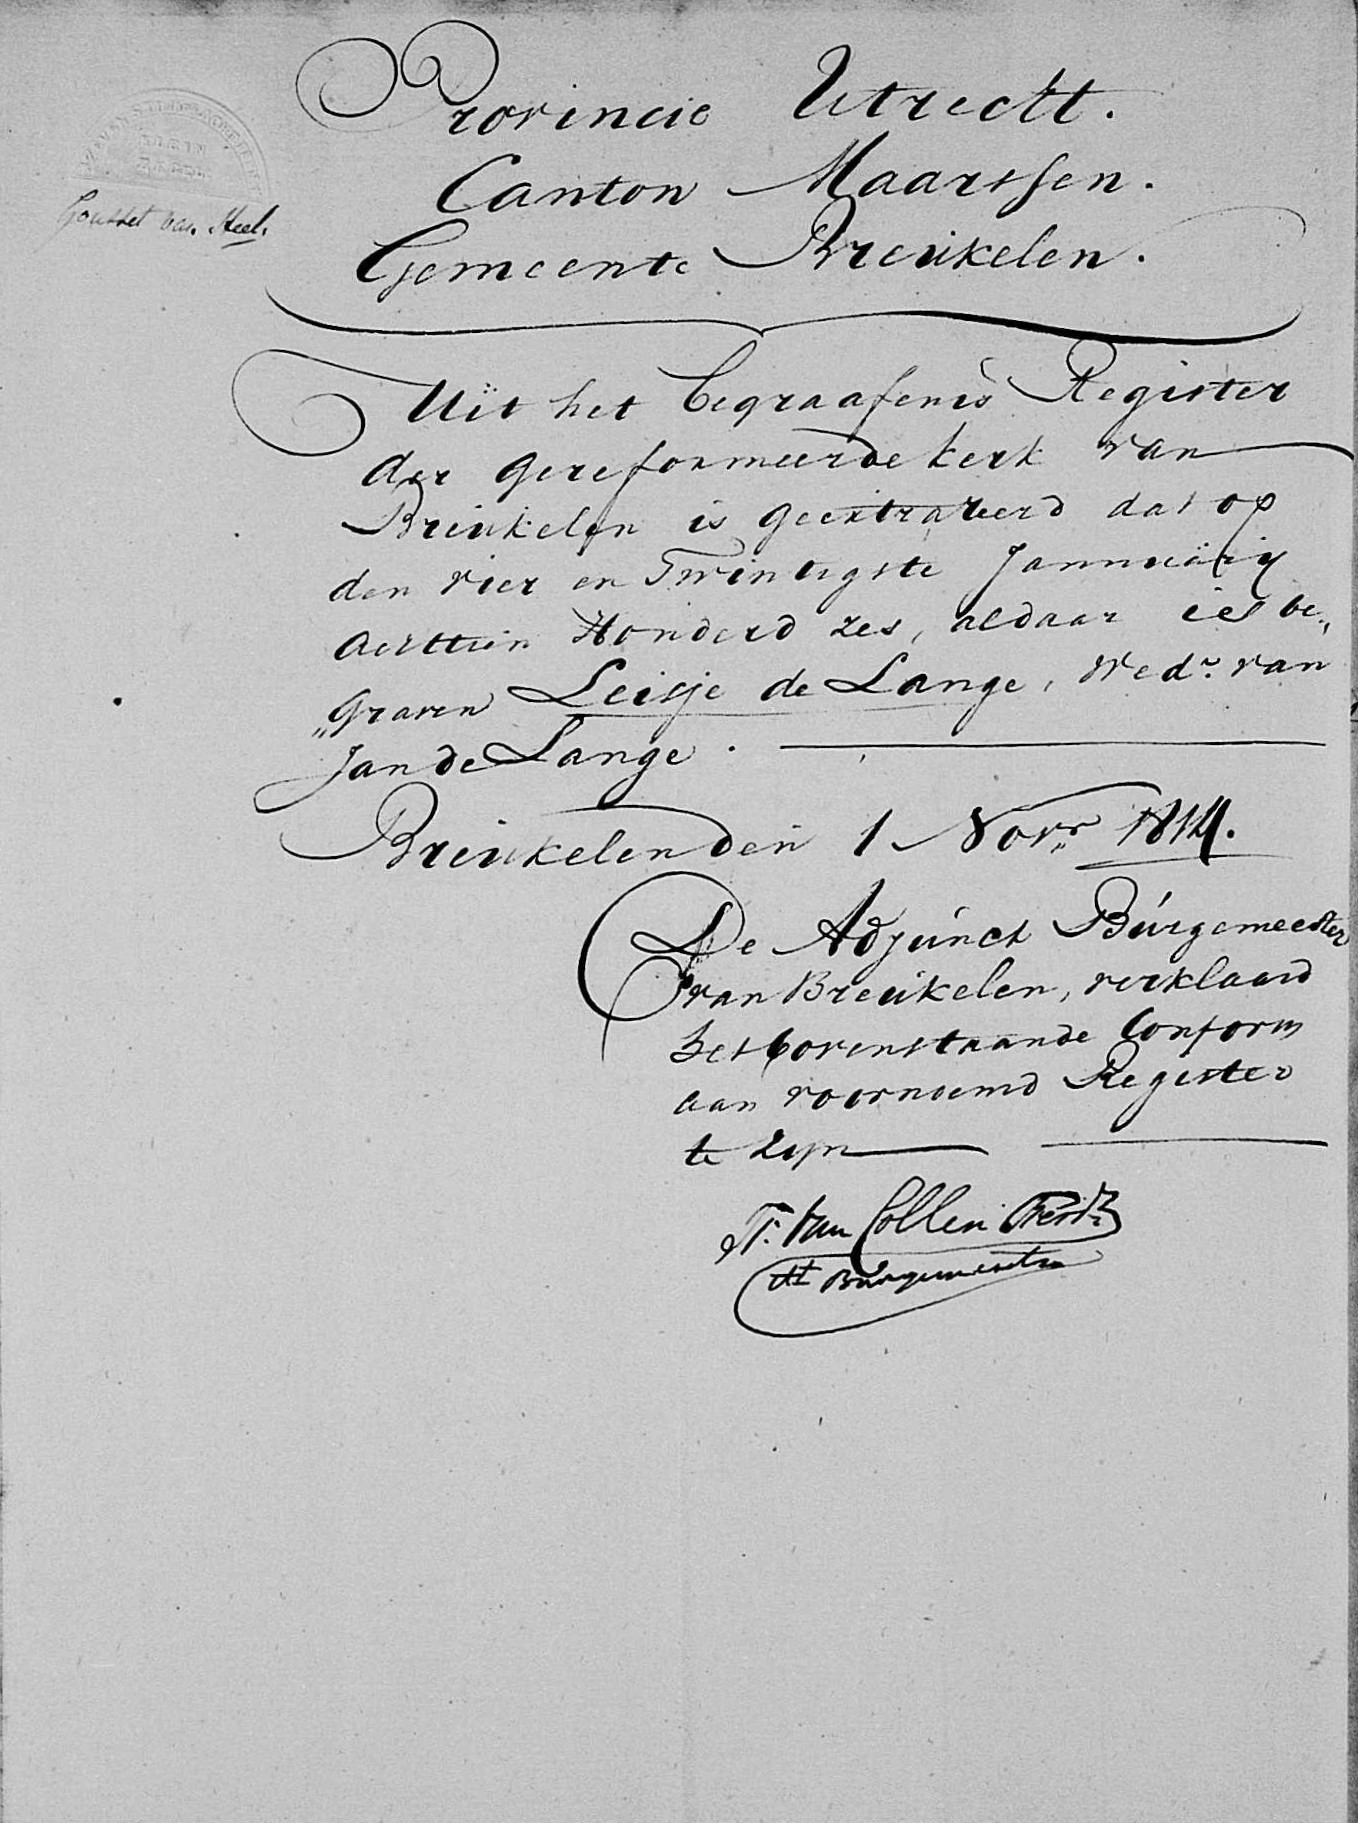 Provincie Utrecht.
Canton Maarssen.
Gousset van Meel.
Gemeente Breukelen.
Uit het begraafenis Register
der gereformeerde kerk van
Breukelen is geextraheerd dat op
den vier en Twintigste Jannuarij
achttien Honderd zes, aldaar is be„
„graven Leisje de Lange, Wedr. van
Jan de Lange.
Breukelen den 1 Novr 1814.
De Adjunct Burgemeester
van Breukelen, verklaard
het bovenstaande Conform
aan voornoemd Register
te zijn
van Collen
Burgemeester